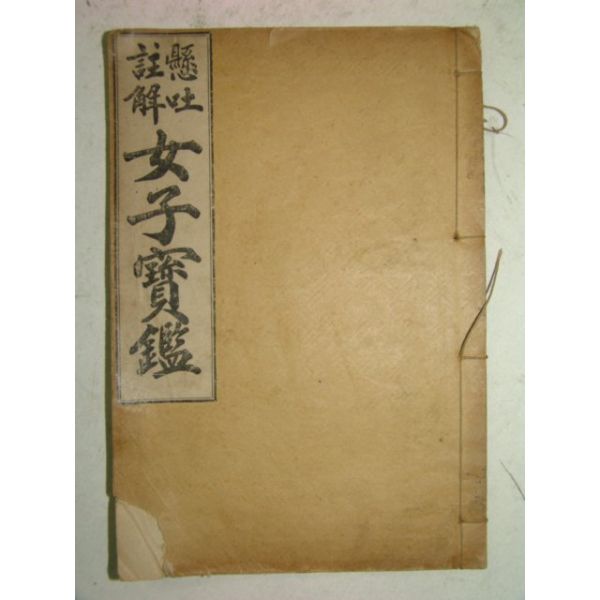 懸吐
註解
女子寶鑑